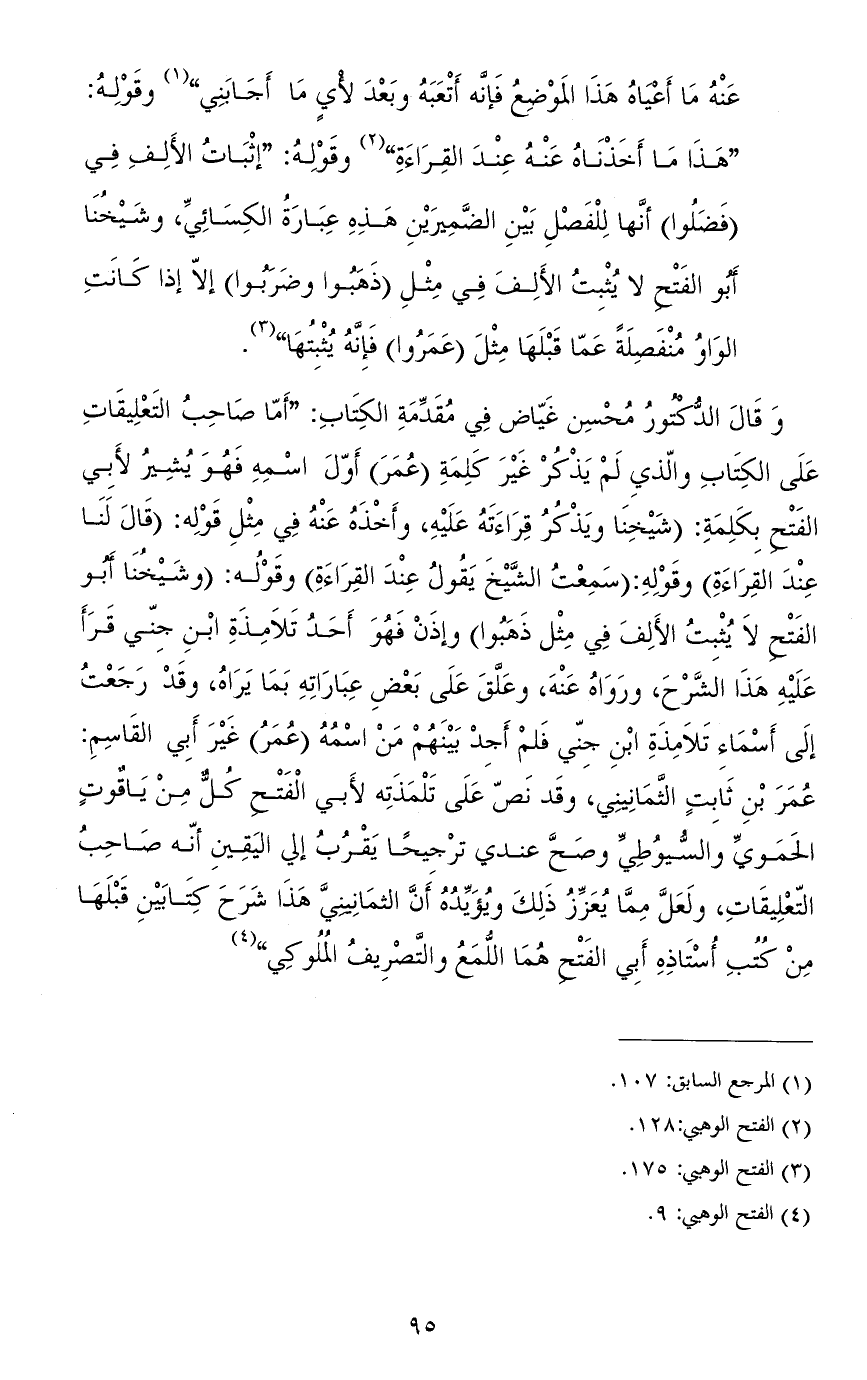 عَنْهُ مَا أَعْيَاهُ هَذَا المَوْضِعُ فَإِنَّه أَتْعَبَهُ وبَعْدَ لأْيٍ مَا أَجَابَنِي“(١) وقَوْلِهُ:
”هَذَا مَا أَخَذْنَاهُ عَنْهُ عِنْدَ القِرَاءَةِ“(٢) وقَوْلِهُ: ”إثْبَاتُ الأَلِفِ فِي
(فَضَلُوا) أنَّها لِلْفَصْلِ بَيْنِ الضَّمِيرَيْنِ هَذِهِ عِبَارَةُ الكِسَائِيِّ، وشَيْخُنَا
أَبُو الفَتْحِ لا يُثْبِتُ الأَلِفَ فِي مِثْلِ (ذَهَبُوا وضَرَبُوا) إلاّ إذا كَانَتِ
الوَاوُ مُنْفَصِلَةً عَمّا قَبْلَهَا مِثْلَ (عَمَرُوا) فَإِنَّهُ يُثْبِتُهَا“(٣).
وَ قَالَ الدُّكْتُورُ مُحْسِن غَيّاض فِي مُقَدِّمَةِ الكِتَابِ: ”أَمّا صَاحِبُ التَعْلِيقَاتِ
عَلَى الكِتَابِ والّذي لَمْ يَذْكُرْ غَيْرَ كَلِمَةِ (عُمَرَ) أوّلَ اسْمِهِ فَهُوَ يُشِيرُ لأَبي
الفَتْحِ بِكَلِمَةِ: (شَيْخِنَا ويَذْكُرُ قِرَاءَتَهُ عَلَيْهِ، وأَخْذَهُ عَنْهُ فِي مِثْلِ قَوْلِه: (قَالَ لَنَا
عِنْدَ القِرَاءَةِ) وقَوْلِهِ:(سَمِعْتُ الشَّيْخَ يَقُولُ عِنْدَ القِرَاءَةِ) وقَوْلُه: (وشَيْخُنَا أَبُو
الفَتْحِ لاَ يُثْبِتُ الأَلِفَ فِي مِثْلِ ذَهَبُوا) وإذَنْ فَهُوَ أَحَدُ تَلاَمِذَةِ ابْنِ جِنّي قَرَأَ
عَلَيْهِ هَذَا الشَّرْحَ، ورَوَاهُ عَنْهَ، وعَلَّقَ عَلَى بَعْضِ عِبَارَاتِهِ بَمَا يَرَاهُ، وقَدْ رَجَعْتُ
إلَى أَسْمَاءِ تَلاَمِذَةِ ابْنِ جِنّي فَلمْ أَجِدْ بَيْنَهُمْ مَنْ اسْمُهُ (عُمَرُ) غَيْرَ أَبي القَاسِمِ:
عُمَرَ بْنِ ثَابِتٍ الثَّمَانِينِي، وقَد نَصّ عَلَى تَلْمَذَتِه لأَبي الْفَتْحِ كُلٌّ مِنْ يَاقُوتٍ
الحَمَوِيِّ والسُّيوُطِيِّ وصَحَّ عندي ترْجِيحًا يَقْرُبُ إلي اليَقِينِ أنّه صَاحِبُ
التَّعْلِيقَاتِ، ولَعَلَّ مِمَّا يُعَزِّزُ ذَلِكَ ويُؤَيِّدُهُ أَنَّ الثمَانِينِيَّ هَذَا شَرَحَ كِتَابَيْنِ قَبْلَهَا
مِنْ كُتُبِ أُسْتَاذِهِ أَبِي الفَتْحِ هُمَا اللُّمَعُ والتَّصْرِيفُ المُلُوكِي“(٤)
(١) المرجع السابق: ١٠٧.
(٢) الفتح الوهبي:١٢٨.
(٣) الفتح الوهبي: ١٧٥.
(٤) الفتح الوهبي: ٩.
٩٥